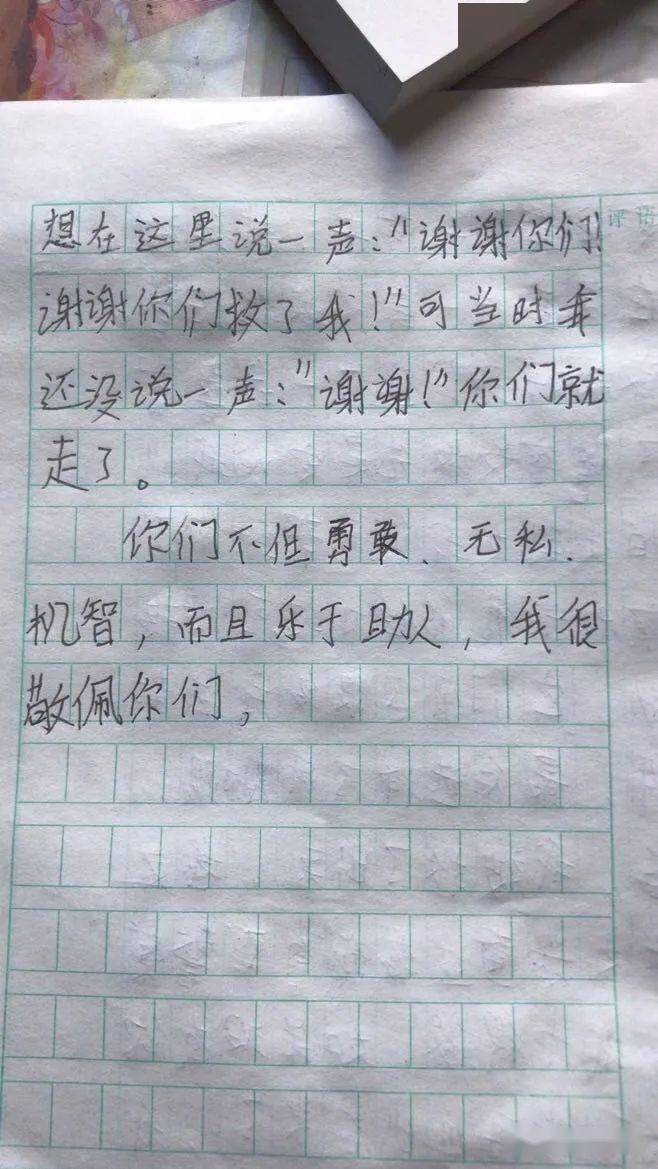 想在这里说一声:"谢谢你们!
谢谢你们救了我!"可当时我
还没说一声:"谢谢!"你们就
走了。
你们不但勇敢、无私、
机智,而且乐于助人,我很
敬佩你们,
评语